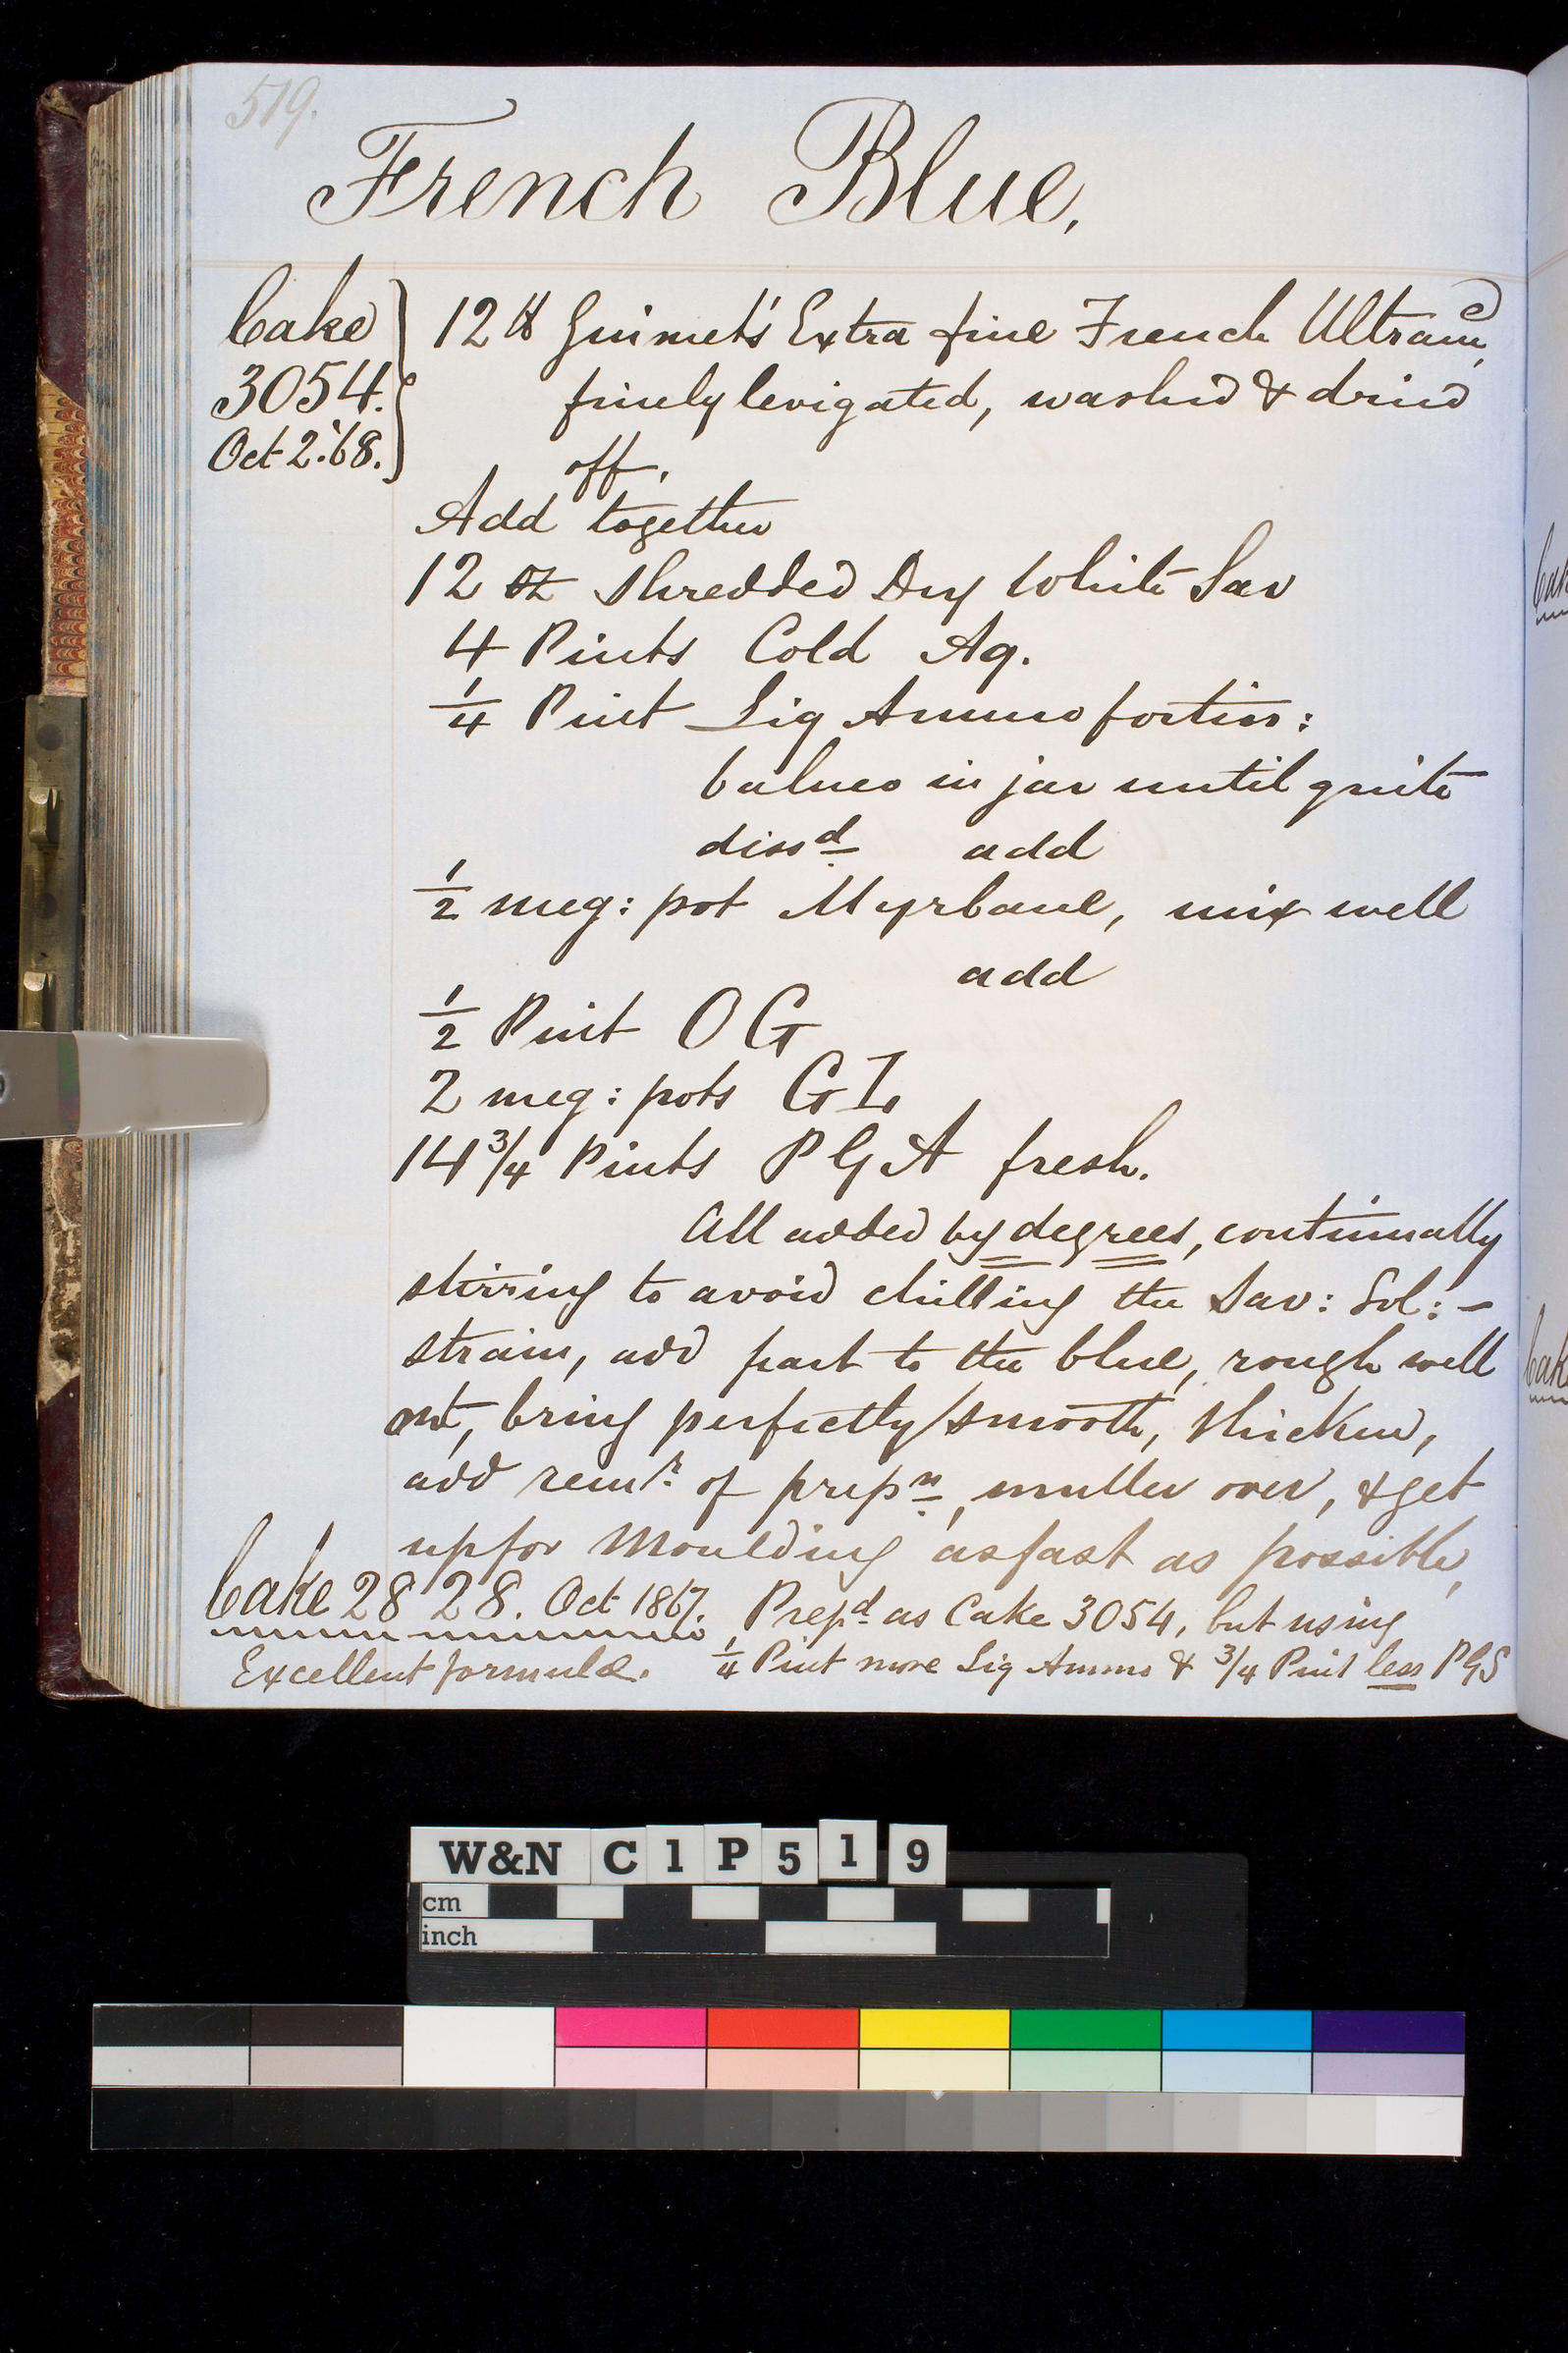 519.
French Blue,
Cake
3054.
Oct 2.'68.
12 lb Guimet's Extra fine French Ultrame,
finely levigated, washed & dried
off.
Add together
12 oz shredded Dry White Sav
4 Pints Cold Aq.
1/4 Pint Liq Ammo fortiss:
balneo in jar until quite
dissd add
1/2 meg: pot Myrbane, mix well
add
1/2 Pint OG
2 meg: pots GL
14 3/4 Pints PGA fresh.
All added by degrees, continually
stirring to avoid chilling the Sav: Sol: -
strain, add part to the blue, rough well
out, bring perfectly smooth, thicken,
add remr. of prepn, muller over, & get
up for Moulding as fast as possible,
Cake 2828. Oct 1867. Prepd as Cake 3054, but using
Excellent formula. 1/4 Pint more Liq Ammo & 3/4 Pint less PGS
Cake
Cake
W&N C1P519
cm
inch